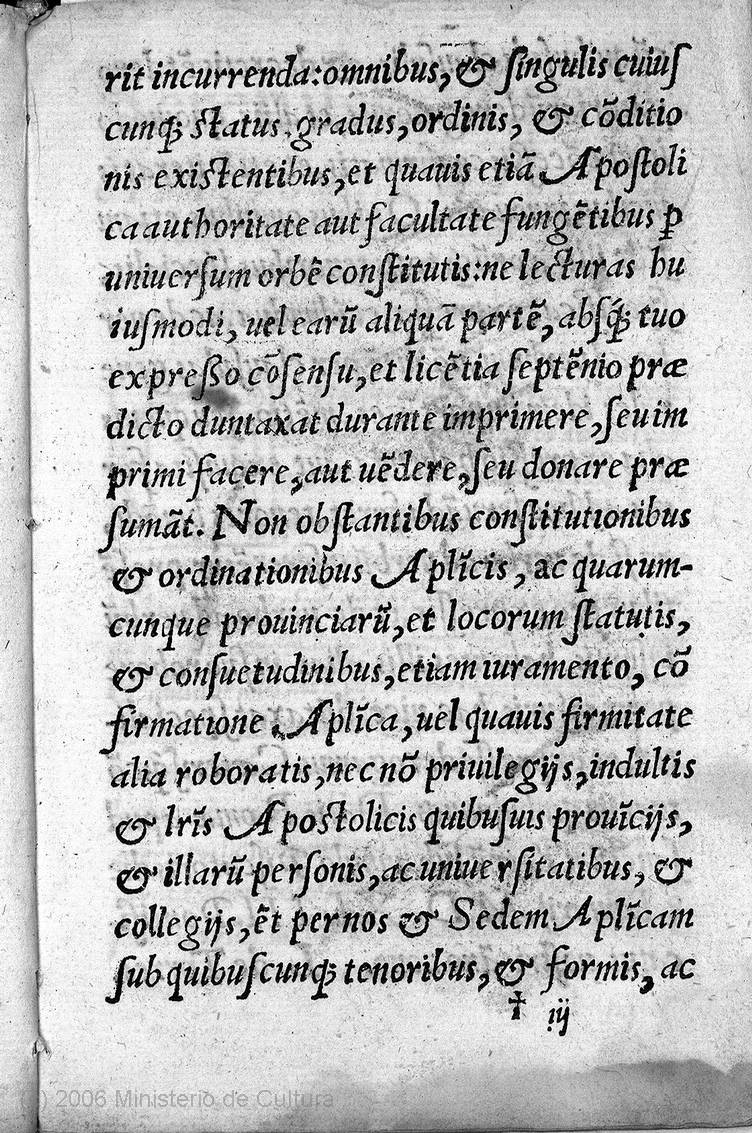 rit incurrenda:omnibus, & ſingulis cuiuſ
cunq; ſtatus, gradus, ordinis, & cõditio
nis exiſtentibus, et quauis etiã Apoſtoli
ca authoritate aut facultate fungẽtibus ꝑ
uniuerſum orbẽ conſtitutis: ne lecturas hu
iuſmodi, uel earũ aliquã partẽ, abſq́; tuo
expreſſo cõſenſu, et licẽtia ſeptẽnio præ
dicto duntaxat durante imprimere, ſeu im
primi facere, aut uẽdere, ſeu donare præ
ſumãt. Non obſtantibus conſtitutionibus
& ordinationibus Aplĩcis, ac quarum-
cunque prouinciarũ, et locorum ſtatutis,
& conſuetudinibus, etiam iuramento, cõ
firmatione Aplĩca, uel quauis firmitate
alia roboratis, nec nõ priuilegijs, indultis
& lrĩs Apoſtolicis quibuſuis prouĩcijs,
& illarũ perſonis, ac uniuerſitatibus, &
collegijs, ẽt per nos & Sedem Aplĩcam
ſub quibuſcunq; tenoribus, & formis, ac
† iij
(c) 2006 Ministerio de Cultura